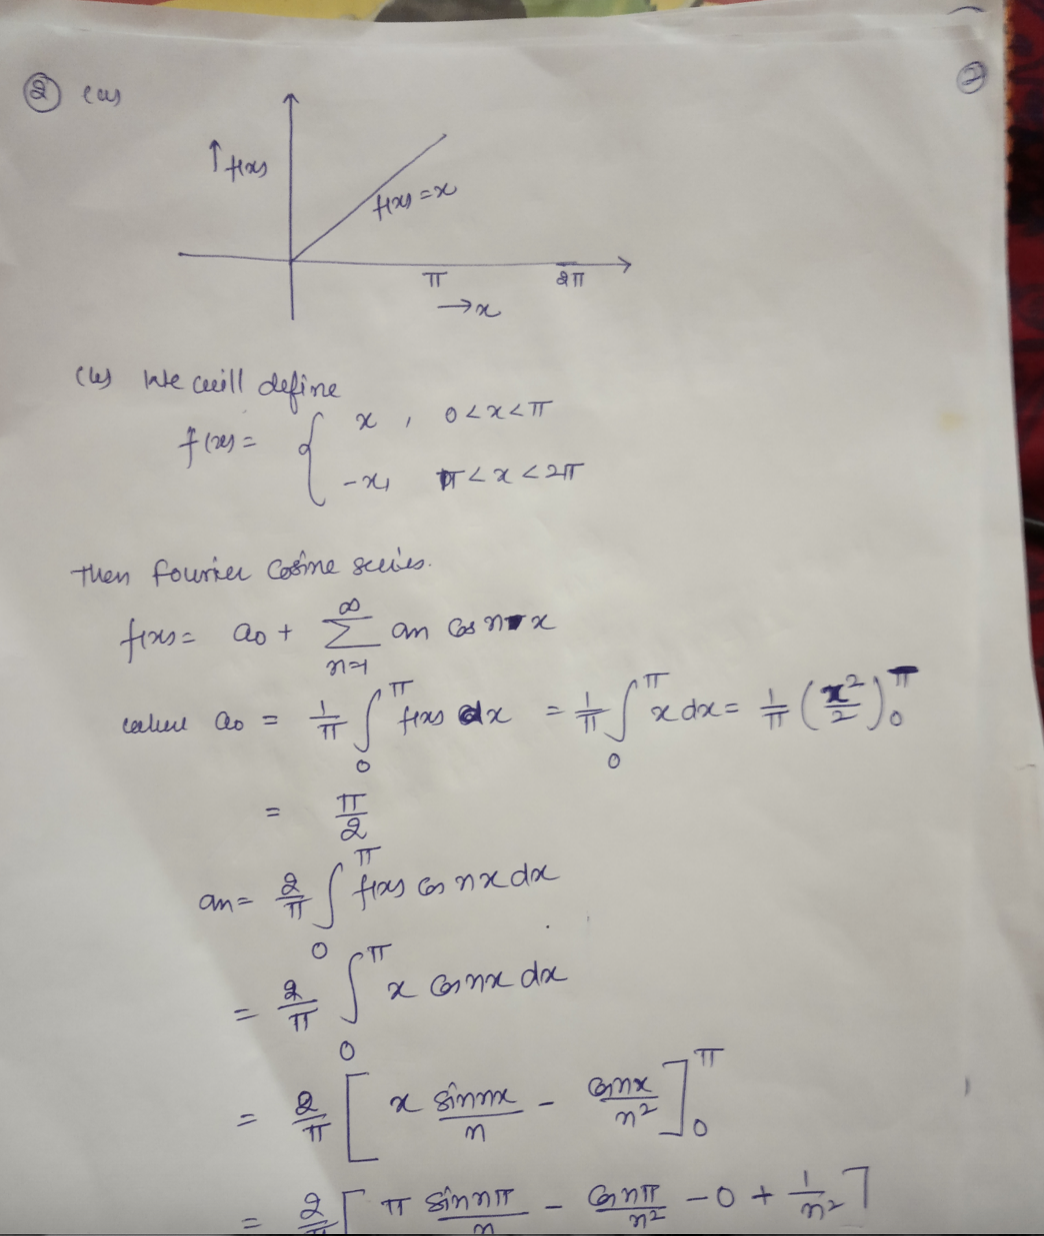 ② (a) ②
↑ f(x)
f(x) = x
π 2π
→ x
(b) We will define
f(x) = { x , 0 < x < π
-x, π < x < 2π
Then fourier Cosine series.
f(x) = a₀ + ∑_{n=1}^{∞} an cos n x
where a₀ = 1/π ∫₀^π f(x) dx = 1/π ∫₀^π x dx = 1/π (x²/2)₀^π
= π/2
an = 2/π ∫₀^π f(x) cos nx dx
= 2/π ∫₀^π x cos nx dx
= 2/π [ x sin nx/n - cos nx/n² ]₀^π
= 2/π [ π sin nπ/n - cos nπ/n² - 0 + 1/n² ]